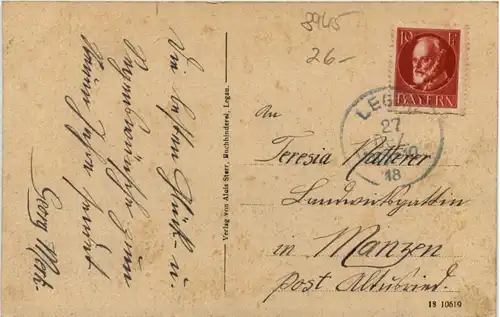 8945
26.-
10 Pf
BAYERN
LEG
27
18
Die besten Glück- u.
Segenswünsche zum
neuen Jahre sendet
Georg
Verlag von Alois Sterr, Buchbinderei, Legau.
An
Teresia Natterer
Landwirtsgattin
in Manzen
Post Altusried.
18 10619